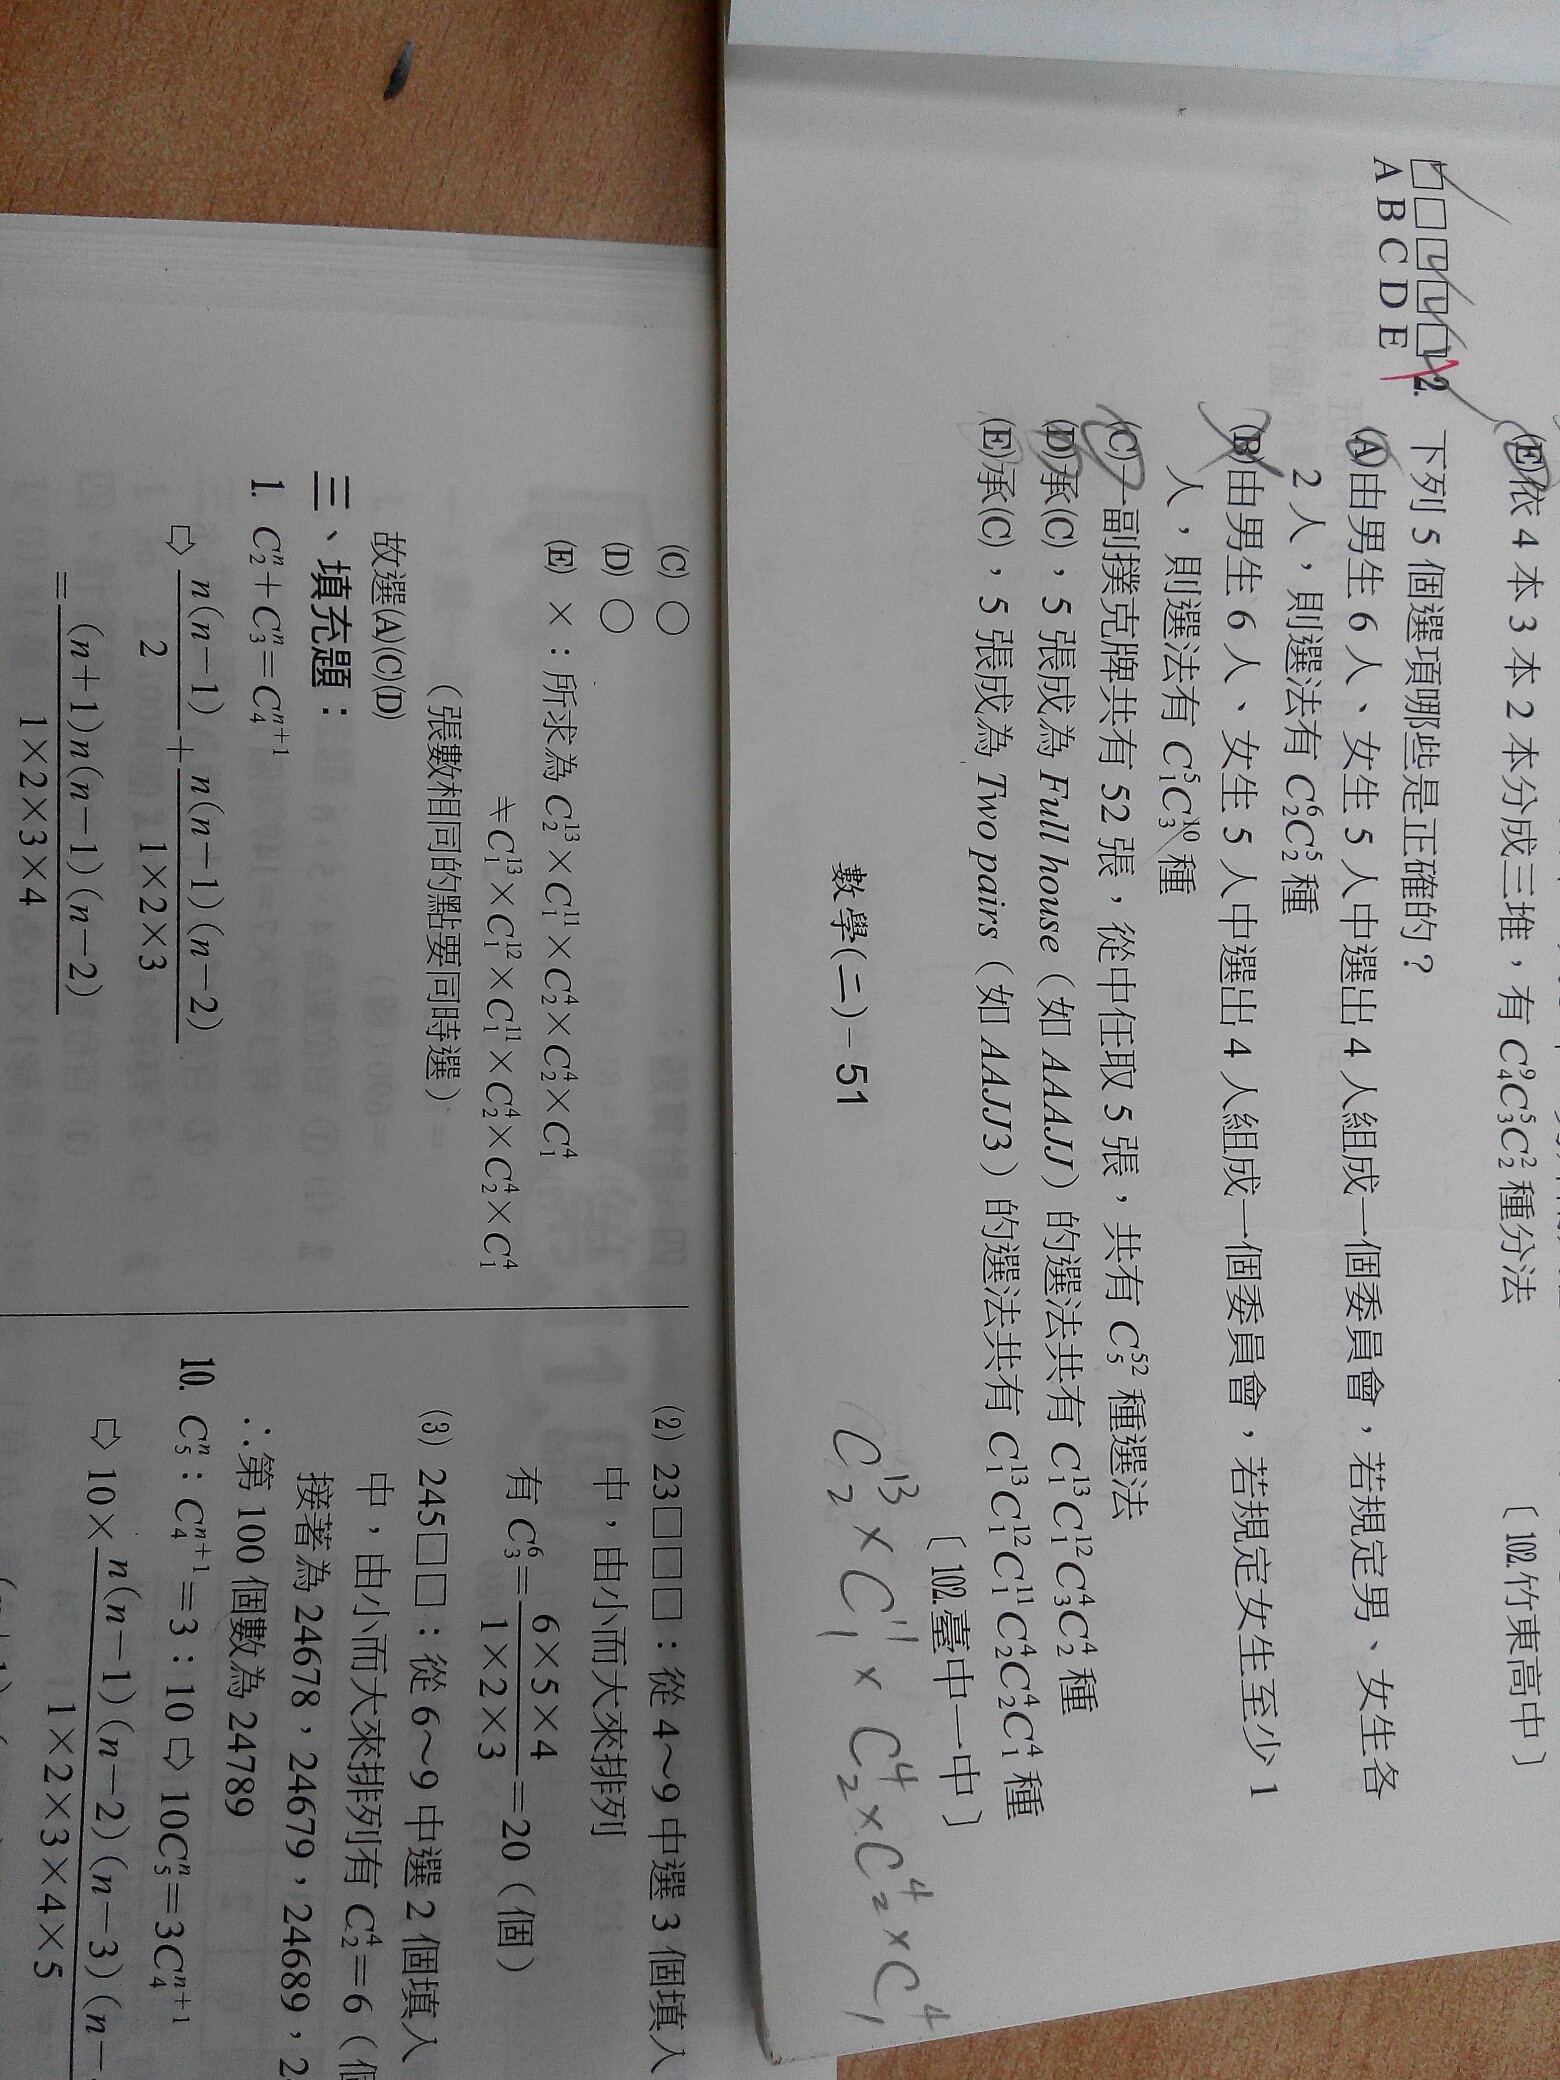 (E)依 4 本 3 本 2 本分成三堆，有 C⁹₄C⁵₃C²₂ 種分法
〔102.竹東高中〕
□□□□□ 2. 下列 5 個選項哪些是正確的？
A B C D E
(A)由男生 6 人、女生 5 人中選出 4 人組成一個委員會，若規定男、女生各
2 人，則選法有 C⁶₂C⁵₂ 種
(B)由男生 6 人、女生 5 人中選出 4 人組成一個委員會，若規定女生至少 1
人，則選法有 C⁵₁C¹⁰₃ 種
(C)一副撲克牌共有 52 張，從中任取 5 張，共有 C⁵²₅ 種選法
(D)承(C)，5 張成為 Full house（如 AAAJJ）的選法共有 C¹³₁C¹²₁C⁴₃C⁴₂ 種
(E)承(C)，5 張成為 Two pairs（如 AAJJ3）的選法共有 C¹³₁C¹²₁C¹¹₁C⁴₂C⁴₂C⁴₁ 種
〔102.臺中一中〕
數學(二)－51
C¹³₂×C¹¹₁×C⁴₂×C⁴₂×C⁴₁
(C) ○
(D) ○
(E) ×：所求為 C¹³₂×C¹¹₁×C⁴₂×C⁴₂×C⁴₁
≠C¹³₁×C¹²₁×C¹¹₁×C⁴₂×C⁴₂×C⁴₁
（張數相同的點要同時選）
故選(A)(C)(D)
三、填充題：
1. Cⁿ₂＋Cⁿ₃＝Cⁿ⁺¹₄
⇨ n(n－1)/2＋n(n－1)(n－2)/1×2×3
＝(n＋1)n(n－1)(n－2)/1×2×3×4
(2) 23□□□：從 4～9 中選 3 個填入
中，由小而大來排列
有 C⁶₃＝6×5×4/1×2×3＝20（個）
(3) 245□□：從 6～9 中選 2 個填入
中，由小而大來排列有 C⁴₂＝6（個
接著為 24678，24679，24689，2
∴第 100 個數為 24789
10. Cⁿ₅：Cⁿ⁺¹₄＝3：10 ⇨ 10Cⁿ₅＝3Cⁿ⁺¹₄
⇨ 10×n(n－1)(n－2)(n－3)(n－/1×2×3×4×5